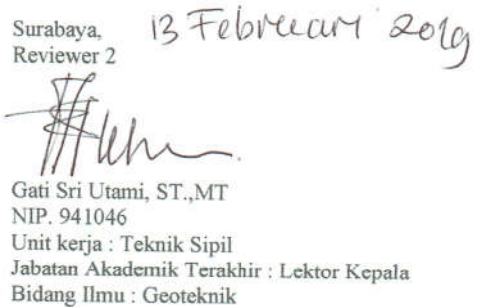 Surabaya, 13 Februari 2019
Reviewer 2
Gati Sri Utami, ST.,MT
NIP. 941046
Unit kerja : Teknik Sipil
Jabatan Akademik Terakhir : Lektor Kepala
Bidang Ilmu : Geoteknik